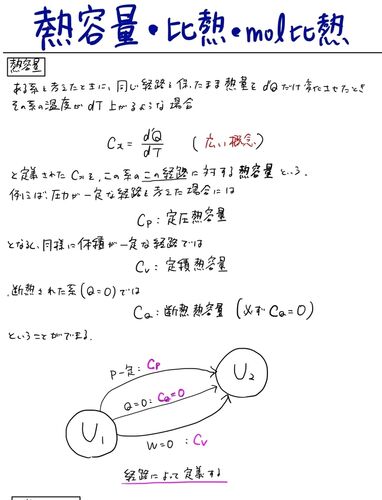 熱容量・比熱・mol比熱
熱容量
ある系を考えたときに、同じ経路を保ったまま熱量をd'Qだけ変化させたとき
その系の温度がdT上がるような場合
Cx = d'Q/dT (広い概念)
と定義されたCxを、この系のこの経路に対する熱容量という。
例えば、圧力が一定な経路を考えた場合には
Cp : 定圧熱容量
となるし、同様に体積が一定な経路では
Cv : 定積熱容量
断熱された系(Q=0)では
CQ : 断熱熱容量 (必ずCQ=0)
ということができる。
P一定 : Cp
U2
Q=0 : CQ=0
U1
W=0 : Cv
経路によって定義する